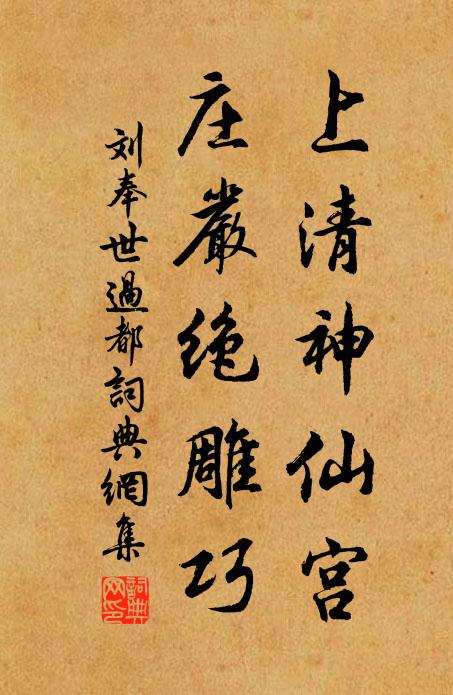 上清神仙宫
庄嚴绝雕巧
刘奉世過都詞典網集
詞典网印